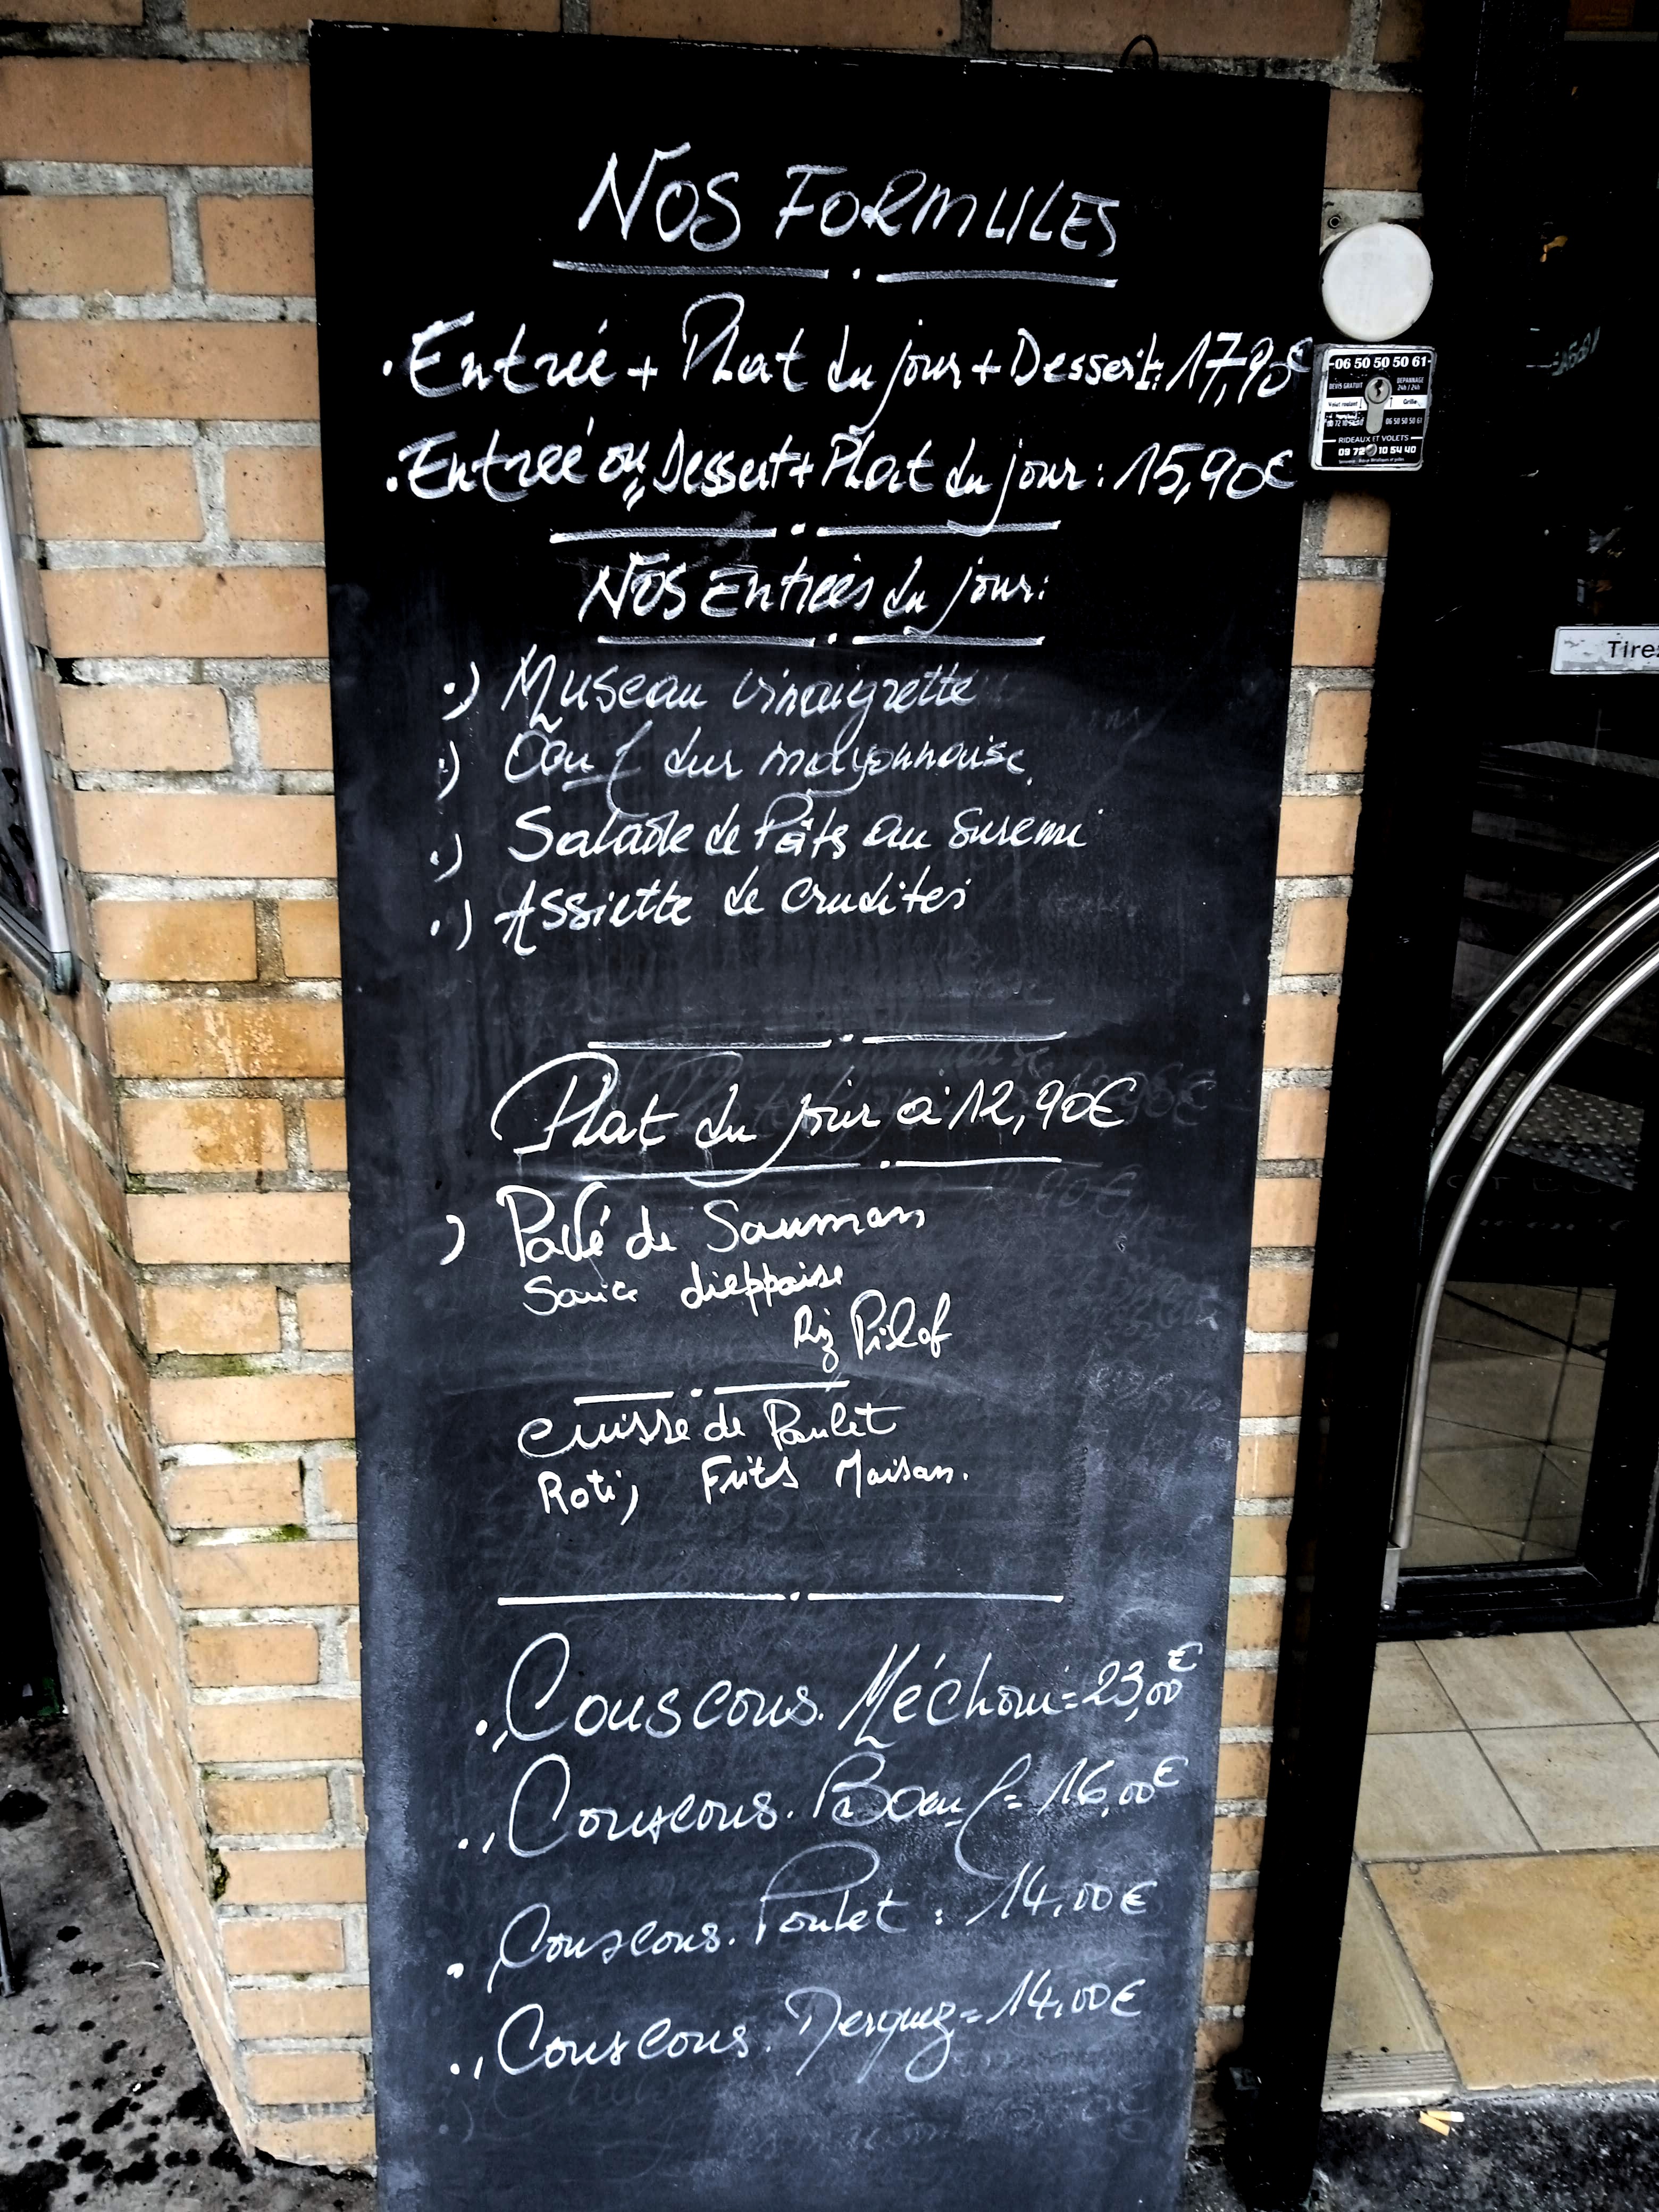 NOS FORMULES
. Entrée + Plat du jour + Dessert: 17,90€
. Entrée ou Dessert + Plat du jour : 15,90€
NOS Entrées du jour:
.) Museau vinaigrette
.) Oeuf dur mayonnaise
.) Salade de Pâts au Suremi
.) Assiette de crudités
Plat du jour à 12,90€
) Pavé de Saumon
Sauce dieppoise
Riz Pilof
cuisse de Poulet
Roti, Frits Maison.
. Couscous. Méchoui = 23,00€
. Couscous. Boeuf = 16,00€
. Couscous. Poulet : 14,00€
. Couscous. Merguez = 14,00€
06 50 50 50 61
DEVIS GRATUIT
DEPANNAGE
24h / 24h
Volet roulant
Grille
06 50 50 50 61
RIDEAUX ET VOLETS
09 72 10 54 40
Tirez